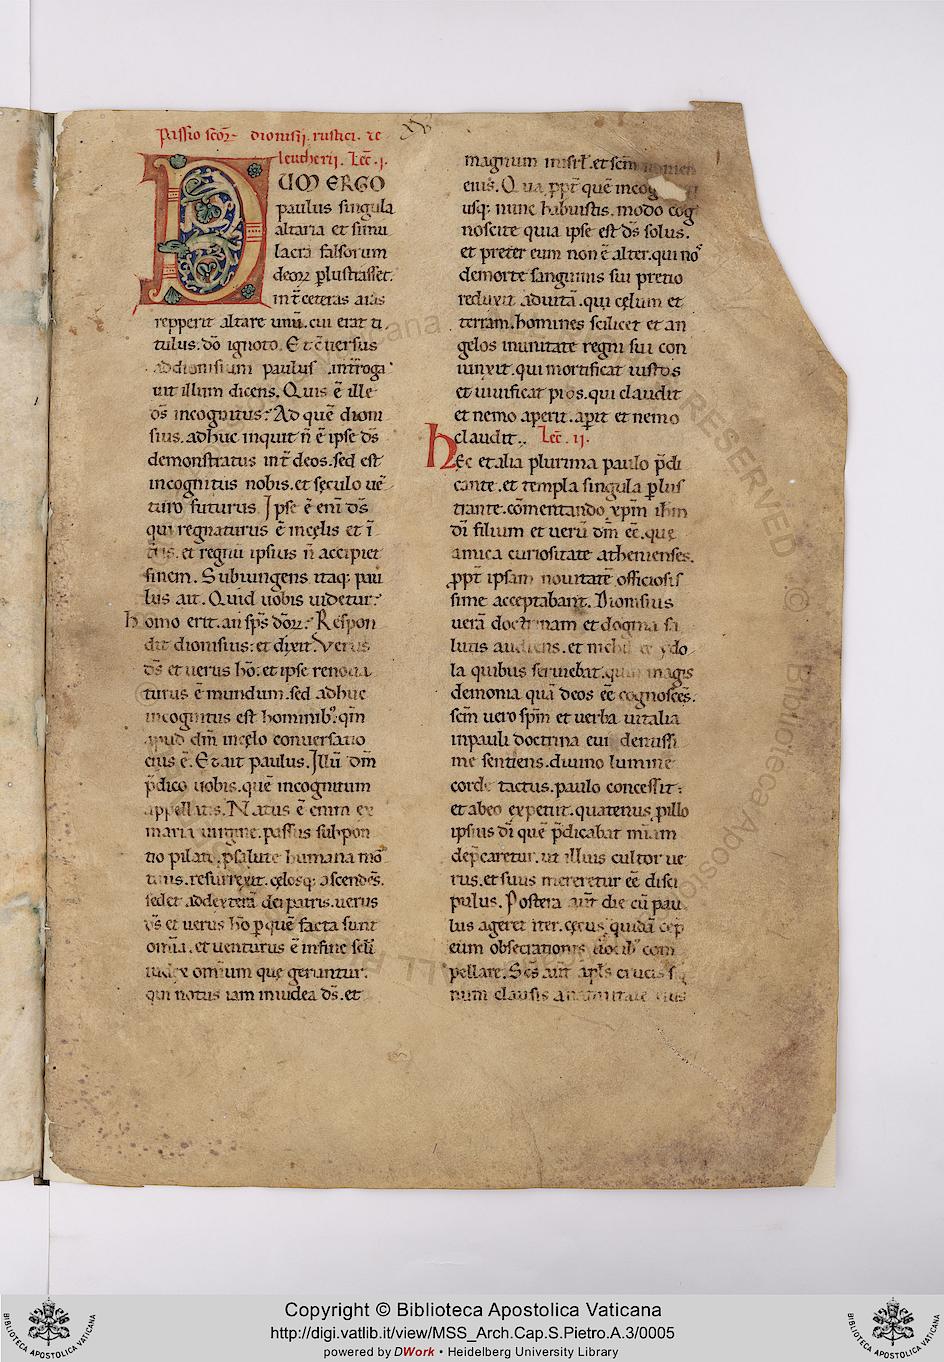 Passio scoꝝ dionisii. rustici. ⁊ e
leutherii. Lec̄. i.
DUM ERGO
paulus singula
altaria et simu
lacra falsorum
deoꝝ plustrasset.
int̄ ceteras aras
repperit altare unū. cui erat ti
tulus. dō ignoto. Et c̄uersus
ad dionisium paulus .int̄roga
uit illum dicens. Quis ē ille
ds̄ incognitus? Ad quē dioni
sius. adhuc inquit n̄ ē ipse ds̄
demonstratus int̄ deos. sed est
incognitus nobis. et seculo uē
turo futurus. Ipse ē eni ds̄
qui regnaturus ē incęlis et ī
et regnū ipsius n̄ accipiet
finem. Subiungens itaq; pau
lus ait. Quid uobis uidetur?
homo erit. an sps̄ dōꝝ? Respon
dit dionisius: et dixit. Verus
ds̄ et uerus hō: et ipse renoua
turus ē mundum. sed adhuc
incognitus est hominib; qm̄
apud dm̄ incęlo conuersatio
eius ē. Et ait paulus. Illū dm̄
p̄dico uobis. quē incognitum
appellatis. Natus ē enim ex
maria uirgine. passus sub pon
tio pilato. psalute humana mō
tuus. resurrexit. cęlosq; ascendēs.
sedet addexterā dei patris. uerus
ds̄ et uerus hō p quē facta sunt
omīa. et uenturus ē infine sclī
iudex omīum quę geruntur.
qui notus iam iniudea ds̄. et
magnum inisrl̄. et scm̄ nomen
eius. Qua ppt̄ quē incog
usq; nunc habuistis. modo cog
noscite quia ipse est ds̄ solus.
et preter eum non ē alter. qui nō
demorte sanguinis sui pretio
reduxit aduitā. qui cęlum et
terram. homines scilicet et an
gelos inunitate regni sui con
iunxit. qui mortificat iustos
et uiuificat pios. qui claudit
et nemo aperit. apit et nemo
claudit. Lec̄. ii.
Hec et alia plurima paulo p̄di
cante. et templa singula plus
trante. cōmentando xpm̄ ihm̄
dī filium et uerū dm̄ eē. quę
amica curiositate athenienses.
ppt̄ ipsam nouitatē officiosis
sime acceptabant. Dionisius
uerā doctrinam et dogma sa
lutis audiens. et nichil ex ydo
la quibus seruiebat. quam magis
demonia quā deos eē cognoscēs.
scm̄ uero spm̄ et uerba uitalia
inpauli doctrina eui dentissi
me sentiens. diuino lumine
corde tactus. paulo concessit:
et abeo expetiit. quatenus pillo
ipsius dī quē p̄dicabat miam
dep̄caretur. ut illius cultor ue
rus. et suus mereretur eē disci
pulus. Postera aut̄ die cū pau
lus ageret iter. cęcus quidā cep̄
eum obsecrationis uocib; com
pellare. Scs̄ aut̄ apls̄ crucis sig
num clausis anatiuitate eius
Copyright © Biblioteca Apostolica Vaticana
http://digi.vatlib.it/view/MSS_Arch.Cap.S.Pietro.A.3/0005
powered by DWork • Heidelberg University Library
BIBLIOTECA APOSTOLICA VATICANA
BIBLIOTECA APOSTOLICA VATICANA